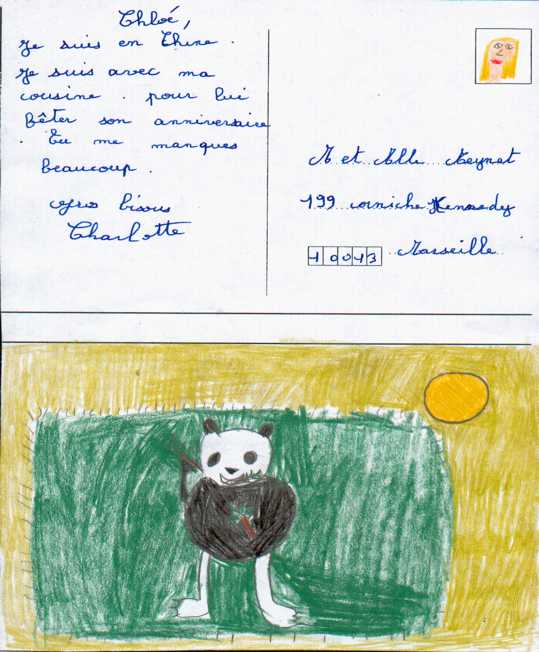 Chloé,
Je suis en Chine.
Je suis avec ma
cousine. pour lui
fêter son anniversaire
. Tu me manques
beaucoup.
Gros bisous
Charlotte
M et Mlle Meynet
199 corniche Kennedy
10013 Marseille